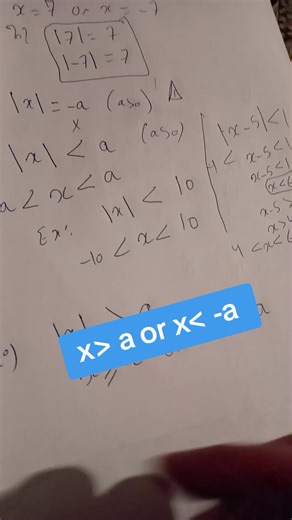 x = 7 or x = -7
|7| = 7
|-7| = 7
|x| = -a (a>0)
x
|x| < a (a>0)
a < x < a
Ex: |x| < 10
-10 < x < 10
|x-5| < 1
-1 < x-5 < 1
x-5 < 1
x < 6
x-5 >
x >
4 < x < 6
x> a or x< -a
a